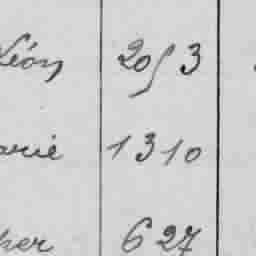 Léon 2053
arie 1310
her 627